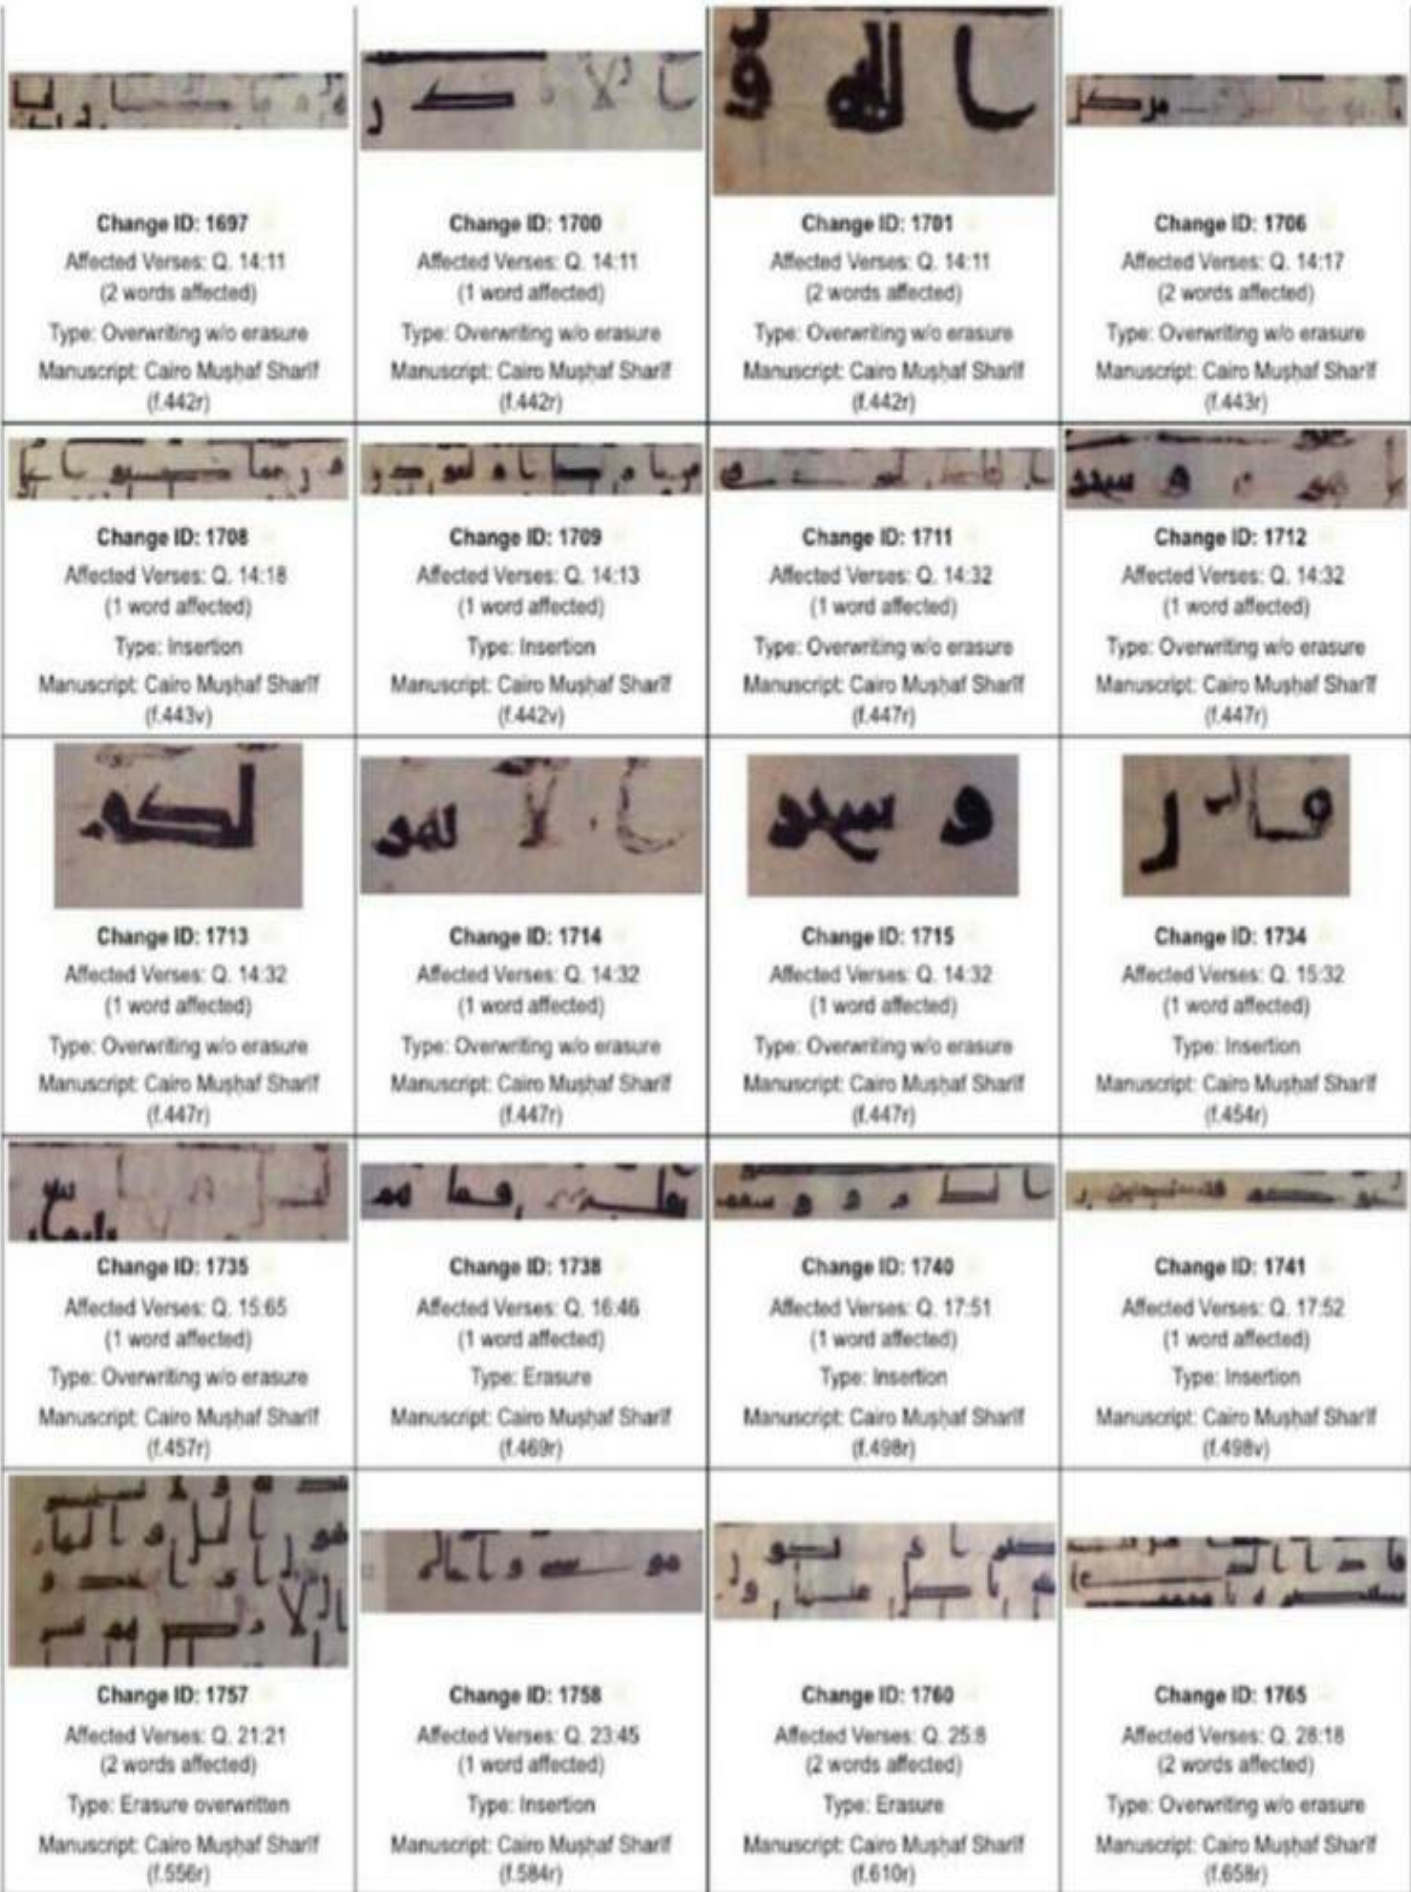 Change ID: 1697
Affected Verses: Q. 14:11
(2 words affected)
Type: Overwriting w/o erasure
Manuscript: Cairo Muṣḥaf Sharīf
(f.442r)
Change ID: 1700
Affected Verses: Q. 14:11
(1 word affected)
Type: Overwriting w/o erasure
Manuscript: Cairo Muṣḥaf Sharīf
(f.442r)
Change ID: 1701
Affected Verses: Q. 14:11
(2 words affected)
Type: Overwriting w/o erasure
Manuscript: Cairo Muṣḥaf Sharīf
(f.442r)
Change ID: 1706
Affected Verses: Q. 14:17
(2 words affected)
Type: Overwriting w/o erasure
Manuscript: Cairo Muṣḥaf Sharīf
(f.443r)
Change ID: 1708
Affected Verses: Q. 14:18
(1 word affected)
Type: Insertion
Manuscript: Cairo Muṣḥaf Sharīf
(f.443v)
Change ID: 1709
Affected Verses: Q. 14:13
(1 word affected)
Type: Insertion
Manuscript: Cairo Muṣḥaf Sharīf
(f.442v)
Change ID: 1711
Affected Verses: Q. 14:32
(1 word affected)
Type: Overwriting w/o erasure
Manuscript: Cairo Muṣḥaf Sharīf
(f.447r)
Change ID: 1712
Affected Verses: Q. 14:32
(1 word affected)
Type: Overwriting w/o erasure
Manuscript: Cairo Muṣḥaf Sharīf
(f.447r)
Change ID: 1713
Affected Verses: Q. 14:32
(1 word affected)
Type: Overwriting w/o erasure
Manuscript: Cairo Muṣḥaf Sharīf
(f.447r)
Change ID: 1714
Affected Verses: Q. 14:32
(1 word affected)
Type: Overwriting w/o erasure
Manuscript: Cairo Muṣḥaf Sharīf
(f.447r)
Change ID: 1715
Affected Verses: Q. 14:32
(1 word affected)
Type: Overwriting w/o erasure
Manuscript: Cairo Muṣḥaf Sharīf
(f.447r)
Change ID: 1734
Affected Verses: Q. 15:32
(1 word affected)
Type: Insertion
Manuscript: Cairo Muṣḥaf Sharīf
(f.454r)
Change ID: 1735
Affected Verses: Q. 15:65
(1 word affected)
Type: Overwriting w/o erasure
Manuscript: Cairo Muṣḥaf Sharīf
(f.457r)
Change ID: 1738
Affected Verses: Q. 16:46
(1 word affected)
Type: Erasure
Manuscript: Cairo Muṣḥaf Sharīf
(f.469r)
Change ID: 1740
Affected Verses: Q. 17:51
(1 word affected)
Type: Insertion
Manuscript: Cairo Muṣḥaf Sharīf
(f.498r)
Change ID: 1741
Affected Verses: Q. 17:52
(1 word affected)
Type: Insertion
Manuscript: Cairo Muṣḥaf Sharīf
(f.498v)
Change ID: 1757
Affected Verses: Q. 21:21
(2 words affected)
Type: Erasure overwritten
Manuscript: Cairo Muṣḥaf Sharīf
(f.556r)
Change ID: 1758
Affected Verses: Q. 23:45
(1 word affected)
Type: Insertion
Manuscript: Cairo Muṣḥaf Sharīf
(f.584r)
Change ID: 1760
Affected Verses: Q. 25:8
(2 words affected)
Type: Erasure
Manuscript: Cairo Muṣḥaf Sharīf
(f.610r)
Change ID: 1765
Affected Verses: Q. 28:18
(2 words affected)
Type: Overwriting w/o erasure
Manuscript: Cairo Muṣḥaf Sharīf
(f.658r)